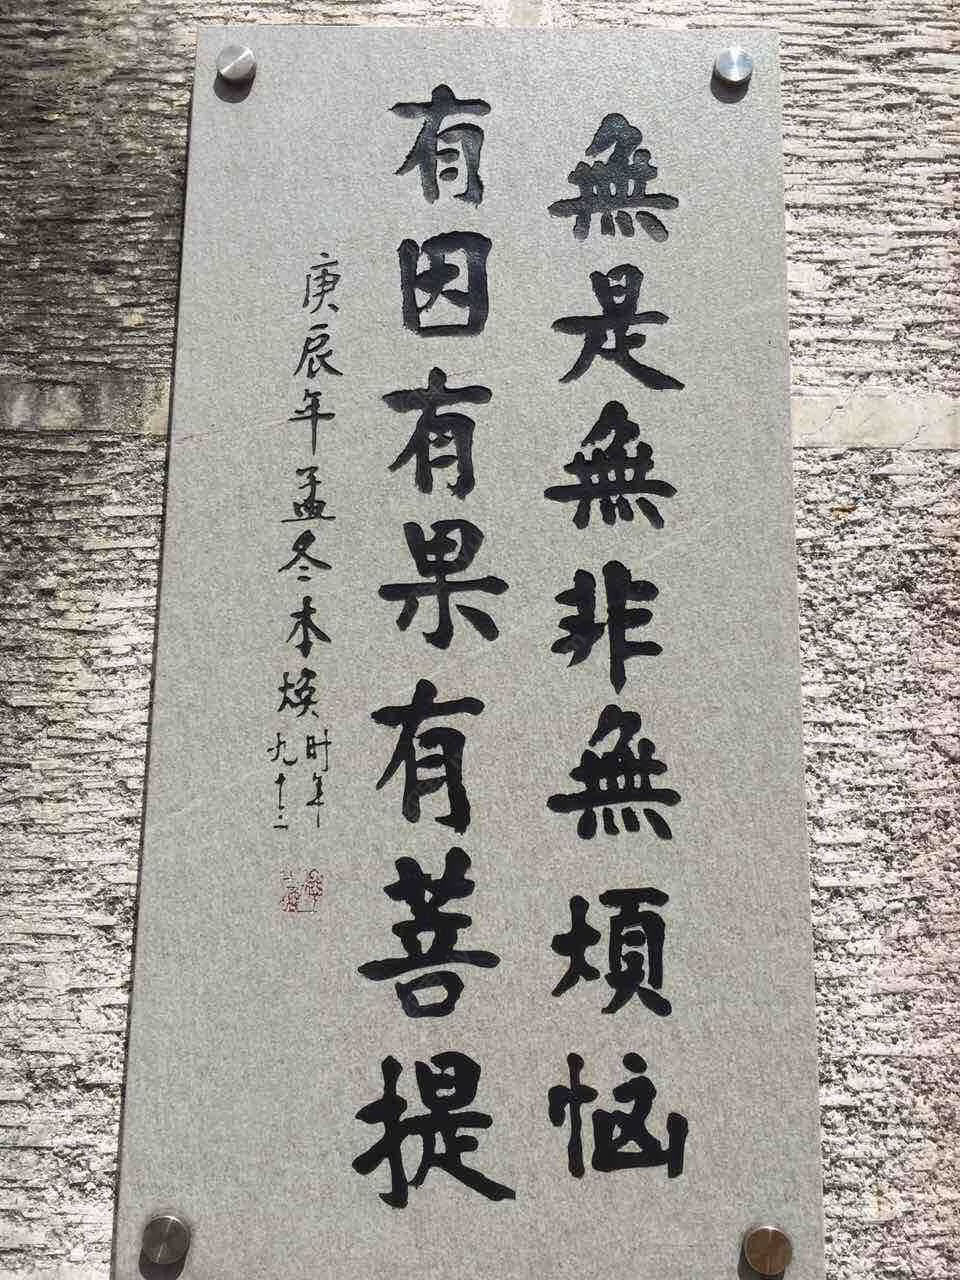 無是無非無煩恼
有因有果有菩提
庚辰年孟冬本焕
时年
九十二